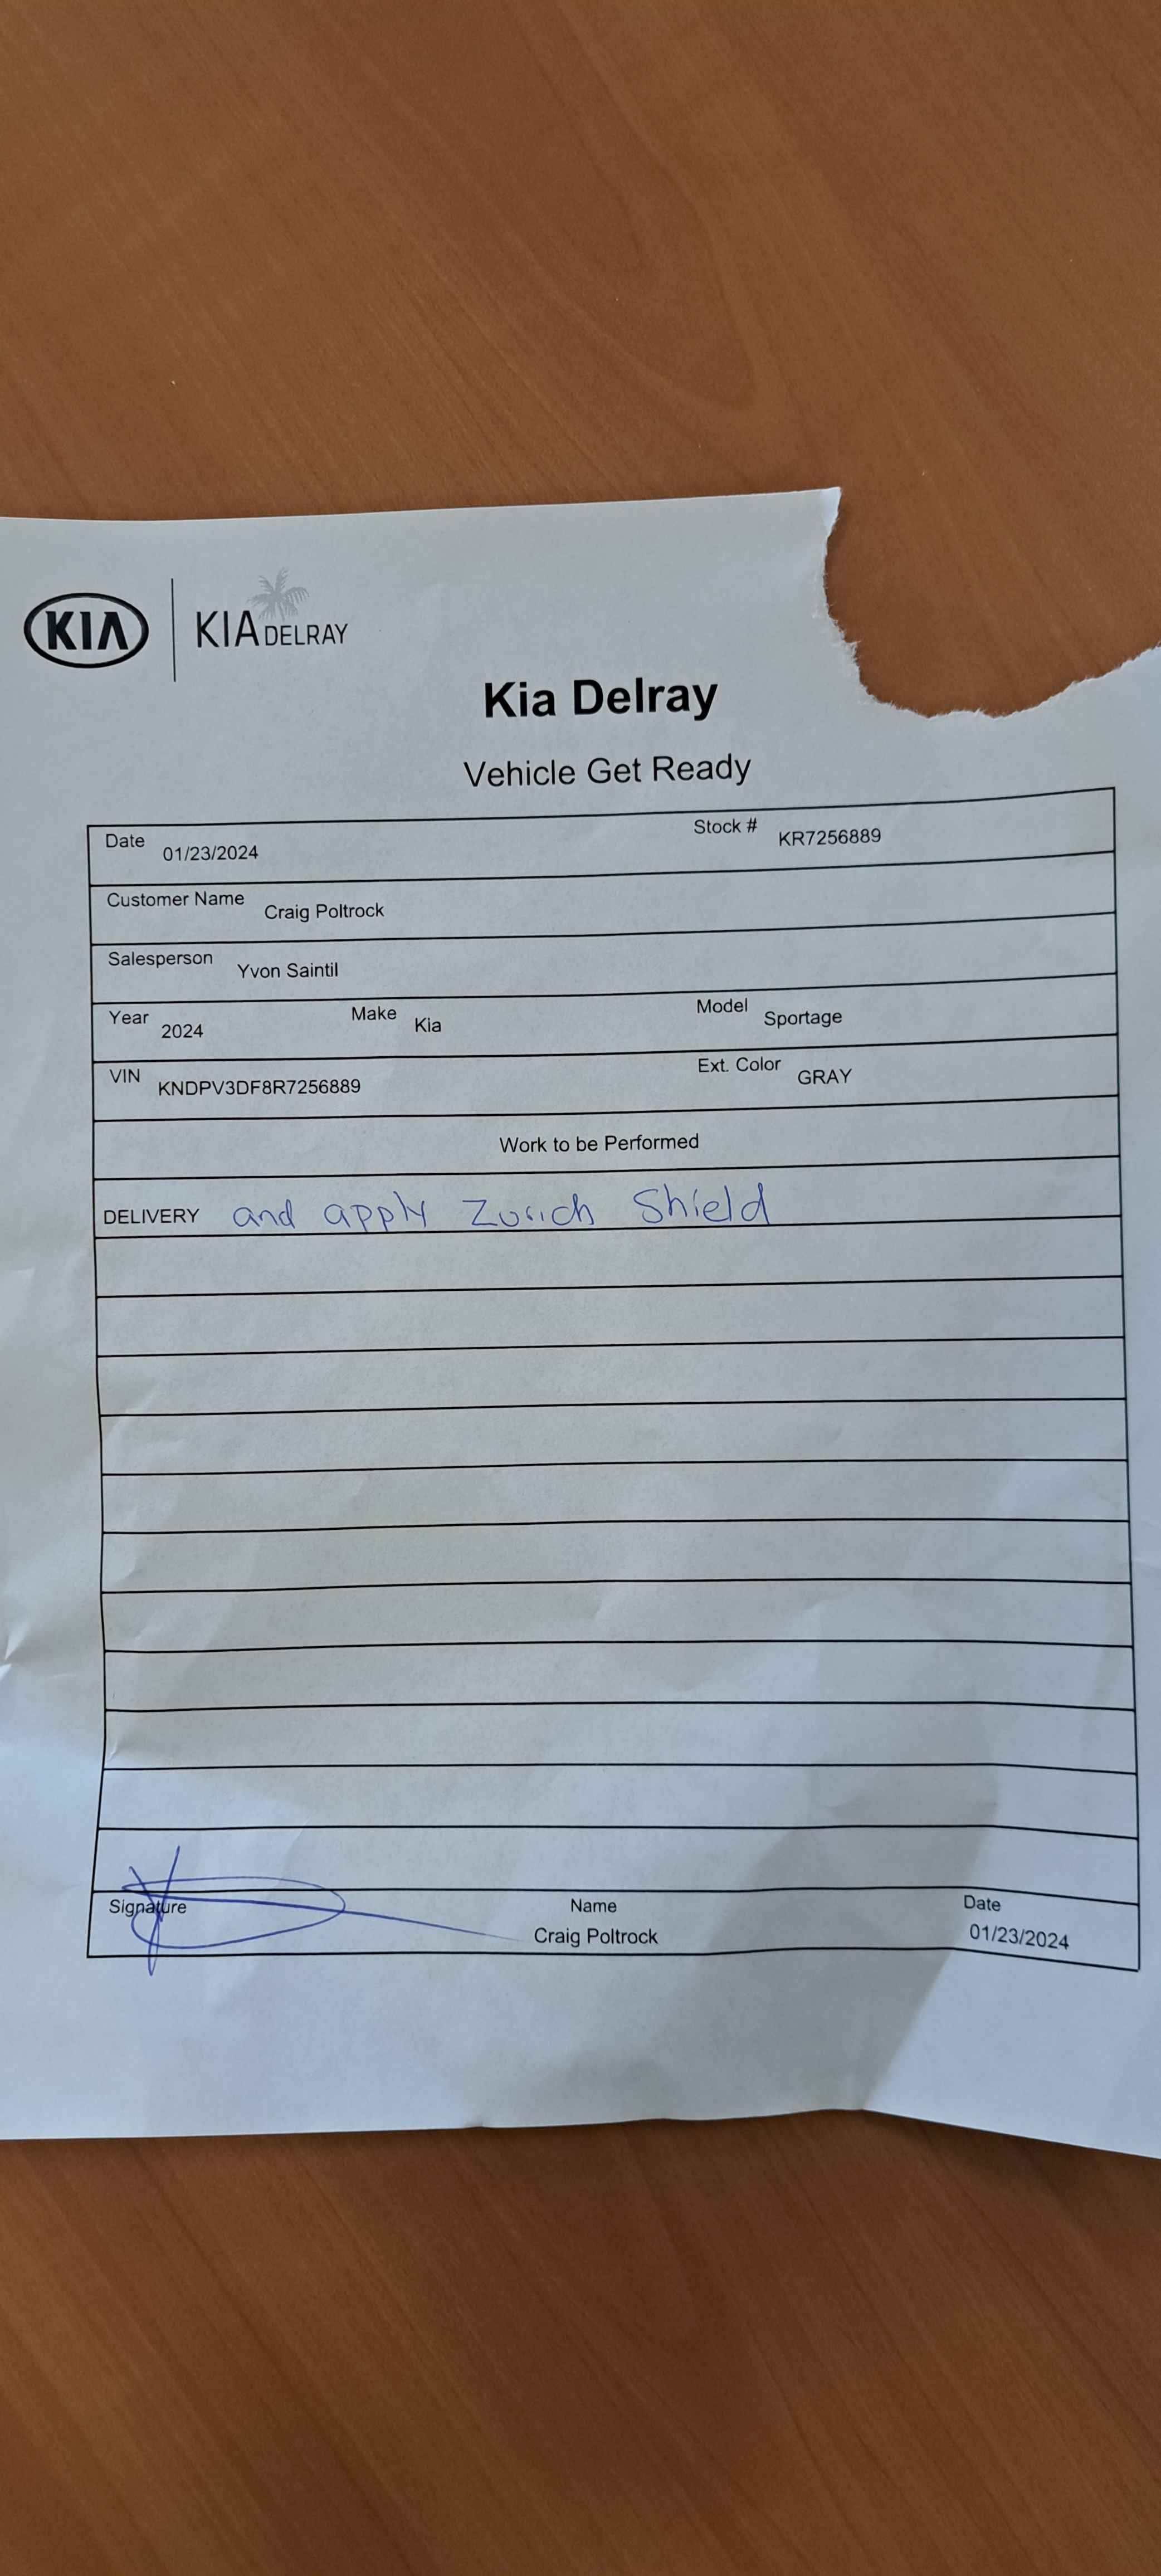 KIA KIA DELRAY
Kia Delray
Vehicle Get Ready
Date 01/23/2024 Stock # KR7256889
Customer Name Craig Poltrock
Salesperson Yvon Saintil
Year 2024 Make Kia Model Sportage
VIN KNDPV3DF8R7256889 Ext. Color GRAY
Work to be Performed
DELIVERY and apply Zurich Shield
Signature Name Date
Craig Poltrock 01/23/2024